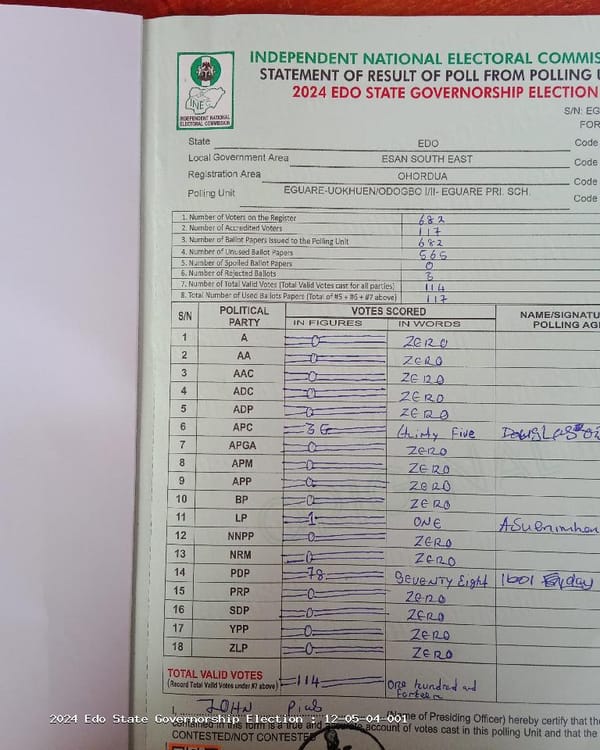 INDEPENDENT NATIONAL ELECTORAL COMMIS
STATEMENT OF RESULT OF POLL FROM POLLING U
2024 EDO STATE GOVERNORSHIP ELECTION
INEC
INDEPENDENT NATIONAL
ELECTORAL COMMISSION
S/N: EG
FOR
State EDO Code
Local Government Area ESAN SOUTH EAST Code
Registration Area OHORDUA Code
Polling Unit EGUARE-UOKHUEN/ODOGBO I/II- EGUARE PRI. SCH. Code
1. Number of Voters on the Register 682
2. Number of Accredited Voters 117
3. Number of Ballot Papers Issued to the Polling Unit 682
4. Number of Unused Ballot Papers 565
5. Number of Spoiled Ballot Papers 0
6. Number of Rejected Ballots 3
7. Number of Total Valid Votes (Total Valid Votes cast for all parties) 114
8. Total Number of Used Ballots Papers (Total of #5 + #6 + #7 above) 117
S/N POLITICAL PARTY VOTES SCORED NAME/SIGNATU
IN FIGURES IN WORDS POLLING AG
1 A 0 ZERO
2 AA 0 ZERO
3 AAC 0 ZERO
4 ADC 0 ZERO
5 ADP 0 ZERO
6 APC thirty Five
7 APGA 0 ZERO
8 APM 0 ZERO
9 APP 0 ZERO
10 BP 0 ZERO
11 LP 1 ONE
12 NNPP 0 ZERO
13 NRM 0 ZERO
14 PDP 78 SEVENTY Eight
15 PRP 0 ZERO
16 SDP 0 ZERO
17 YPP 0 ZERO
18 ZLP 0 ZERO
TOTAL VALID VOTES 114 One hundred and
(Record Total Valid Votes under #7 above) Forteen
I, JOHN (Name of Presiding Officer) hereby certify that the
2024 Edo State Governorship Election : 12-05-04-001
contained in this form is a true and accurate account of votes cast in this polling Unit and that the
CONTESTED/NOT CONTESTED